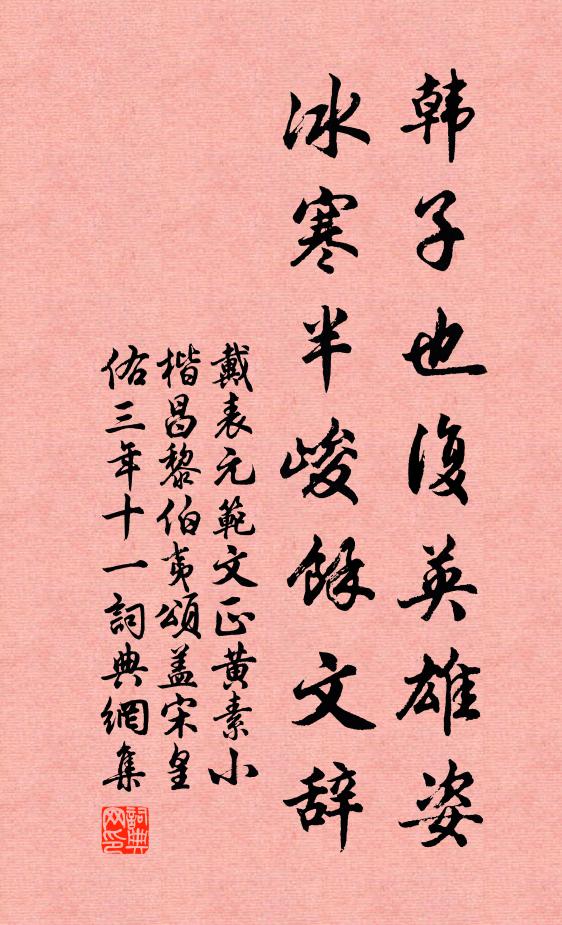 韩子也復英雄姿
冰寒半峻餘文辞
戴表元範文正黄素小
楷昌黎伯夷頌盖宋皇
佑三年十一詞典網集
詞典
网印